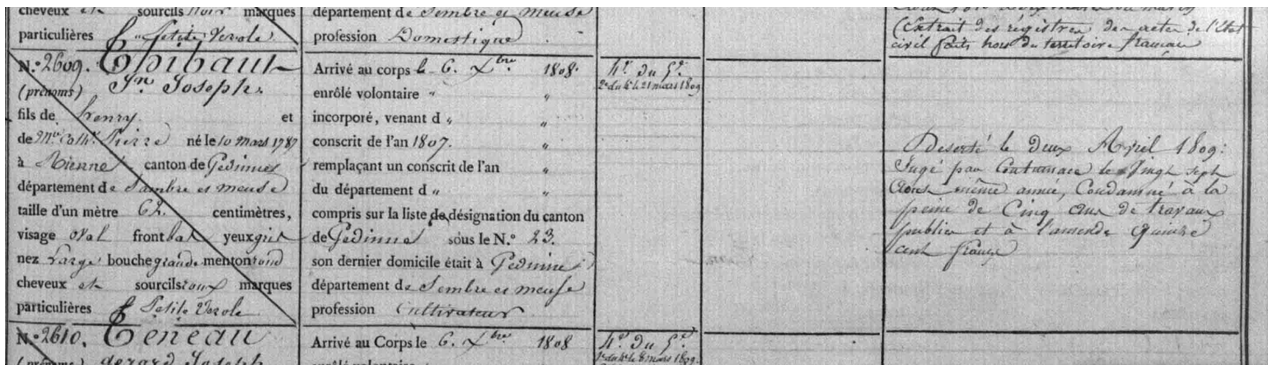 cheveux et sourcils Noir marques
particulières Petite Verole
N.º 2609. Thibaut
(prénoms) Jn Joseph
fils de henry et
de Mie Cathe Pierre né le 10 mars 1787
à Rienne canton de Gedinnes
département de Sambre et meuse
taille d'un mètre 64. centimètres,
visage oval front bas yeux gris
nez Large bouche grande menton rond
cheveux et sourcils roux marques
particulières Petite Verole
N.º 2610. Teneau
(prénoms) Gerard Joseph
département de Sambre et meuse
profession Domestique
Arrivé au corps le 6. Xbre 1808.
enrôlé volontaire " "
incorporé, venant d " "
conscrit de l'an 1807. "
remplaçant un conscrit de l'an "
du département d " "
compris sur la liste de désignation du canton
de Gedinnes sous le N.º 23.
son dernier domicile était à Gedinnes
département de Sambre et meuse
profession Cultivateur
Arrivé au Corps le 6. Xbre 1808
enrôlé volontaire
4e. du 5e.
2e du 4e le 21 mars 1809
4e. du 5e
1er du 4e le 8 mars 1809.
(Extrait des régistres des actes de l'Etat
civil faits hors du territoire français
Deserté le deux Avril 1809:
Jugé par Contumace le Vingt sept
Aout même année, Condamné à la
peine de Cinq ans de travaux
publics et à l'amende quinze
cent francs